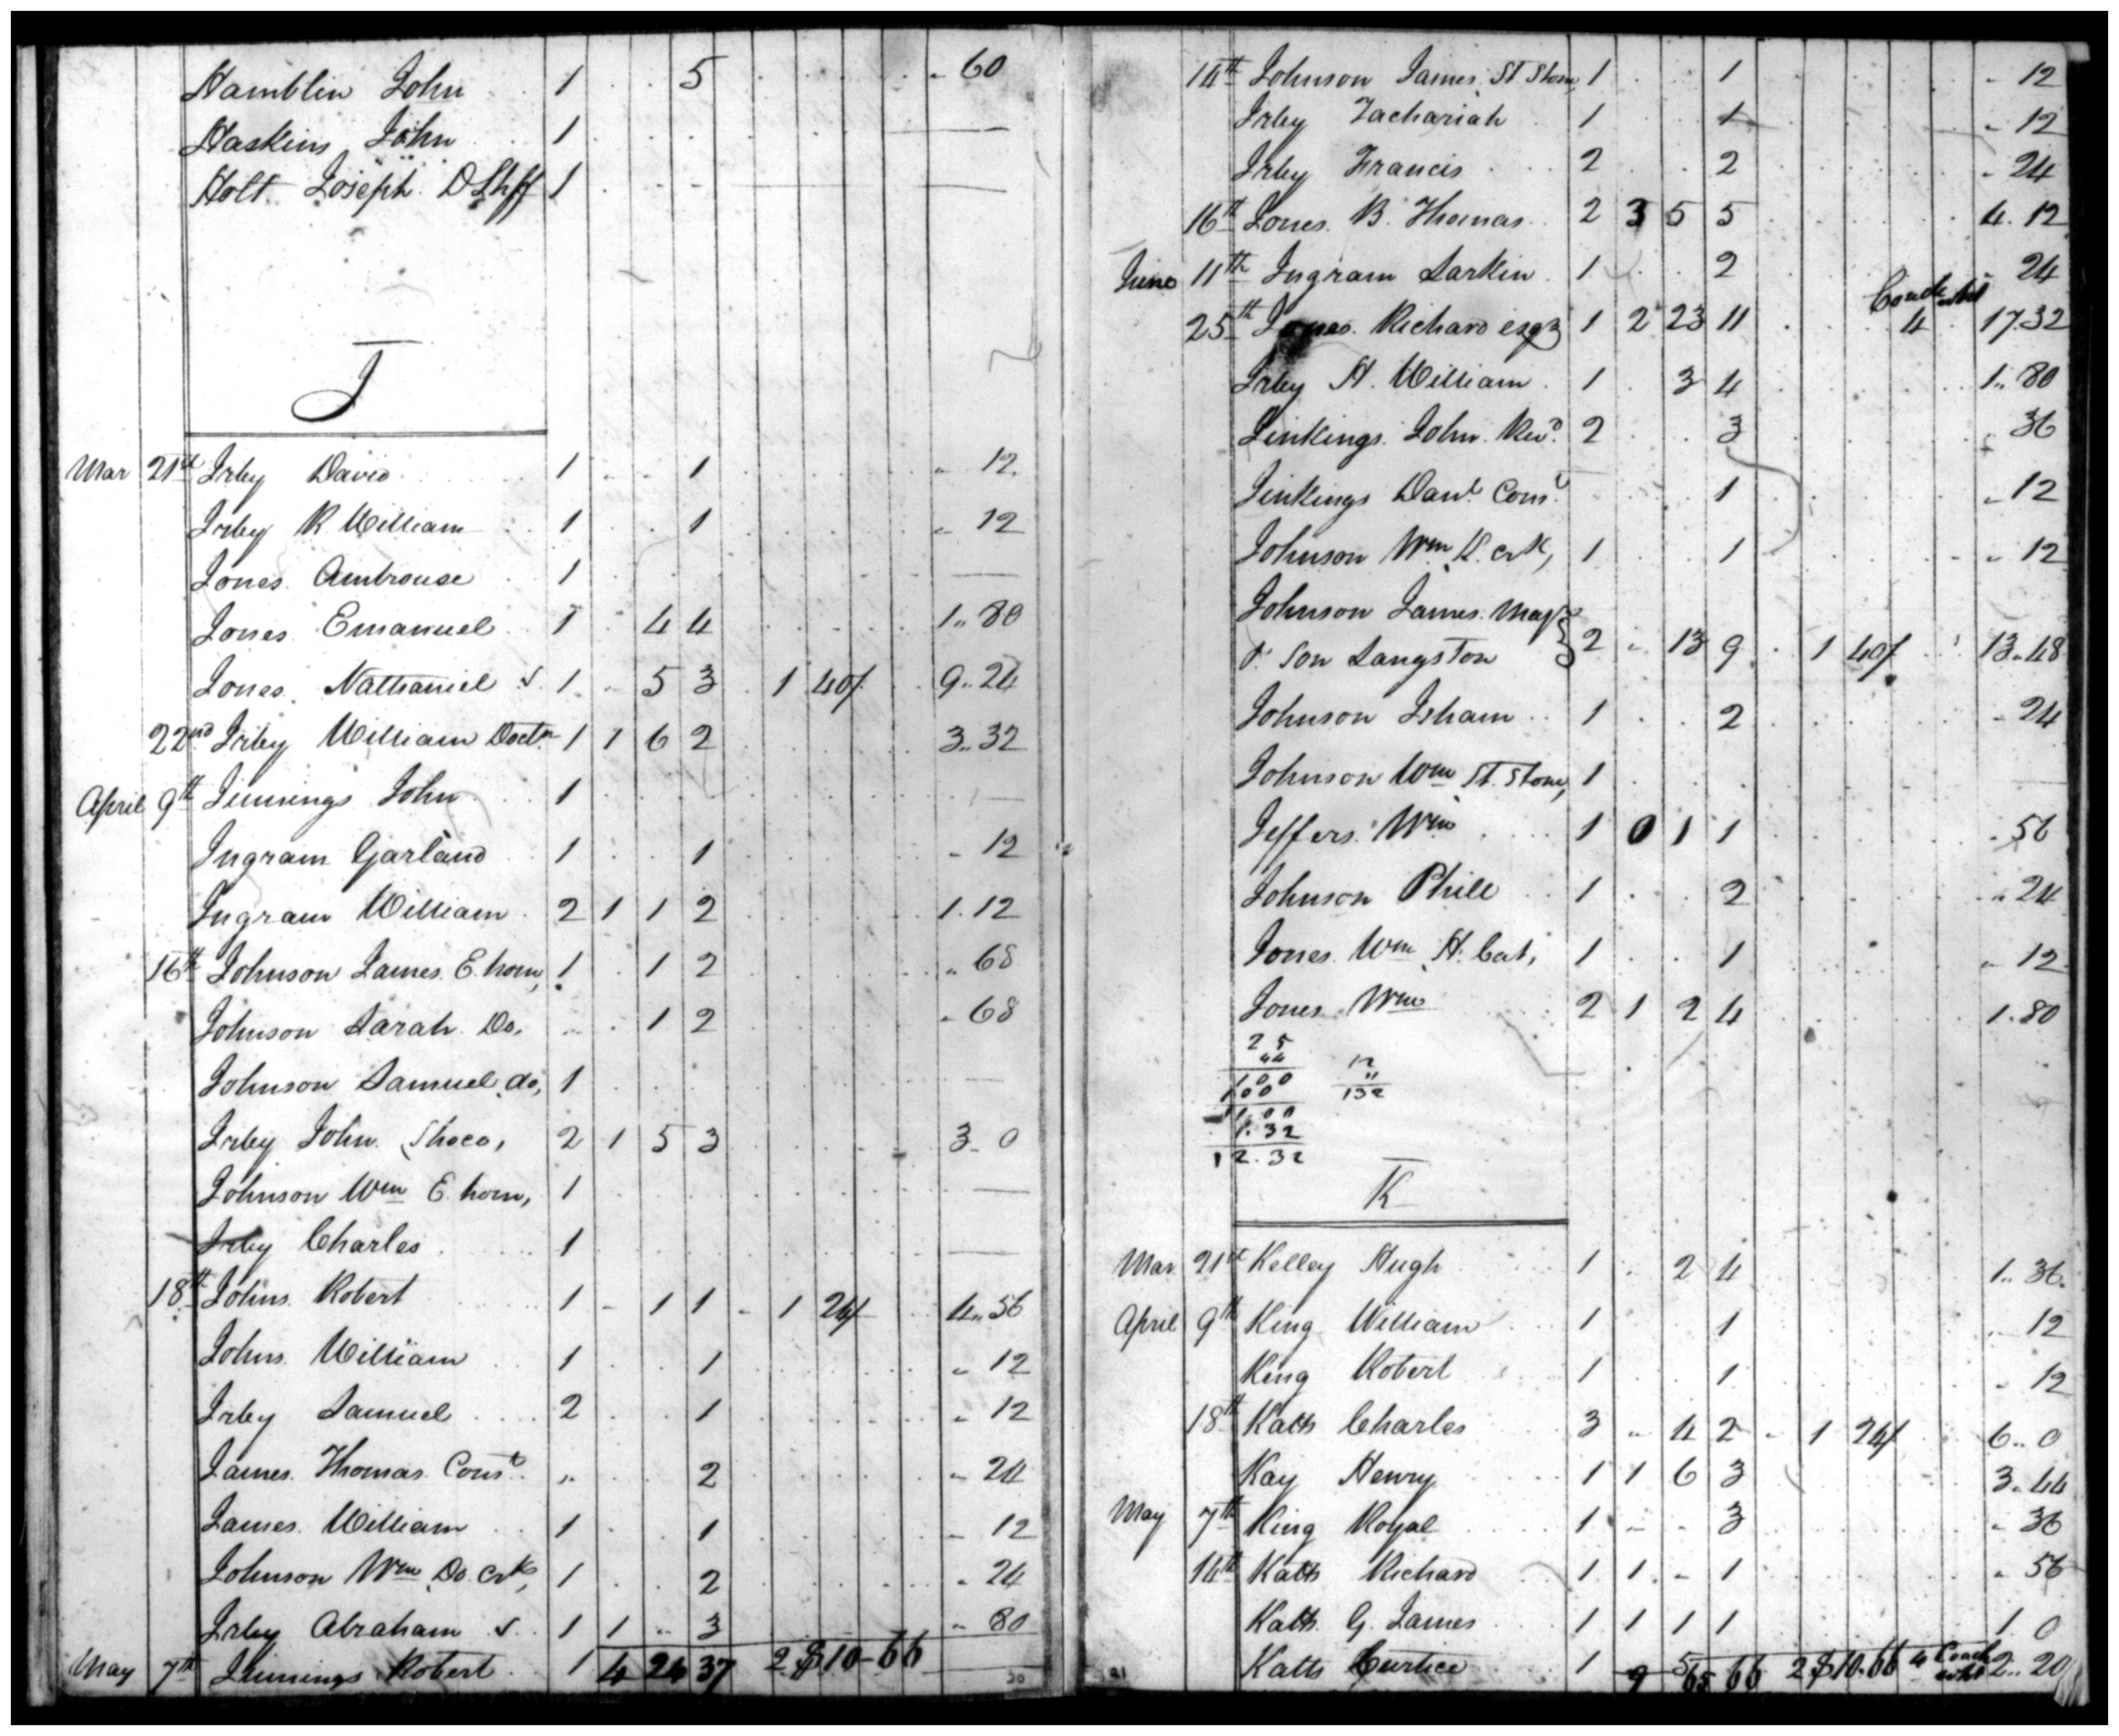 Hamblin John 1 . . 5 . . . . . 60
Haskins John 1 . . . . . . . . —
Holt Joseph D Shff 1 . . . . . . . —
J
Mar 21st Irby David 1 . . 1 . . . . . 12
Irby R William 1 . . 1 . . . . . 12
Jones Ambrouse 1 . . . . . . . . —
Jones Emanuel 1 . 4 4 . . . . 1.. 80
Jones Nathaniel S. 1 . 5 3 . 1 40/ . 9.. 24
22nd Irby William Doctr 1 1 6 2 . . . . 3.. 32
April 9th Jinnings John 1 . . . . . . . . —
Ingram Garland 1 . . 1 . . . . . 12
Ingram William 2 1 1 2 . . . . 1. 12
16th Johnson James E. horn, 1 . 1 2 . . . . .. 68
Johnson Sarah Do. .. . 1 2 . . . . . 68
Johnson Samuel do, 1 . . . . . . . —
Irby John Shoco, 2 1 5 3 . . . . 3. 0
Johnson Wm E. horn, 1 . . . . . . . —
Irby Charles 1 . . . . . . . —
18th Johns Robert 1 - 1 1 - 1 24/ . 4.. 56
Johns William 1 . . 1 . . . . .. 12
Irby Samuel 2 . . 1 . . . . .. 12
James Thomas Const. .. . . 2 . . . . .. 24
James William 1 . . 1 . . . . .. 12
Johnson Wm Do. crk, 1 . . 2 . . . . . 24
Irby Abraham S. 1 1 .. 3 . . . . .. 80
May 7th Jinnings Robert 1 4 24 37 2 $10-66 —
30
14th Johnson James, St Stone, 1 . . 1 . . . . . 12
Irby Zachariah 1 . . 1 . . . . .. 12
Irby Francis 2 . . 2 . . . . . 24
16th Jones B. Thomas 2 3 5 5 . . . . 4. 12
June 11th Ingram Larkin 1 . . 2 . . . . 24
25th Jones Richard esqr 1 2 23 11 . . . Coach whl 4 . 17.32
Irby H. William 1 . 3 4 . . . . 1.. 80
Jinkings John Revd. 2 . . 3 . . . . . 36
Jinkings Danl Const. . . . 1 . . . . .. 12
Johnson Wm K. crk, 1 . . 1 . . . . .. 12
Johnson James Majr
& Son Langston } 2 .. 13 9 . 1 40/ . 13.48
Johnson Isham 1 . . 2 . . . . . 24
Johnson Wm St. Stone, 1 . . . . . . . —
Jeffers Wm 1 0 1 1 . . . . . 56
Johnson Phill 1 . . 2 . . . . .. 24
Jones Wm H. Cat, 1 . . 1 . . . . .. 12
Jones Wm 2 1 2 4 . . . . 1.80
25
44 12
100 11
100 132
11.00
1.32
12.32
K
Mar 21st Kelley Hugh 1 . 2 4 . . . . 1.. 36.
April 9th King William 1 . . 1 . . . . .. 12
King Robert 1 . . 1 . . . . . 12
18th Katts Charles 3 .. 4 2 - 1 24/ . 6.. 0
Kay Henry 1 1 6 3 . . . . 3.. 44
May 7th King Royal 1 - . 3 . . . . . 36
14th Katts Richard 1 1 - 1 . . . . .. 56
Katts G. James 1 1 1 1 . . . . 1 0
Katts Curtice 1 . 5 . 2.. 20
9 65 66 2 $10.66 4 Coach whl
31